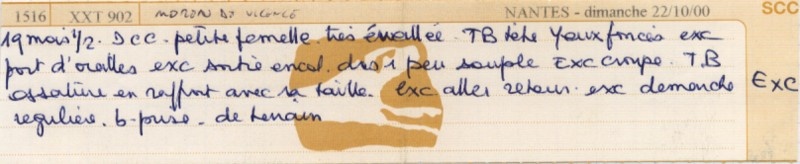 1516 XXT 902 MORON DE VICENCE NANTES - dimanche 22/10/00 SCC
19 mois 1/2. DCC. petite femelle très éveillée. TB tête Yeux foncés exc
port d'oreilles exc sortie encol. dos 1 peu souple Exc croupe. T.B
ossature en rapport avec sa taille. exc aller retour. exc demarche Exc
regulière. b. prise. de terrain